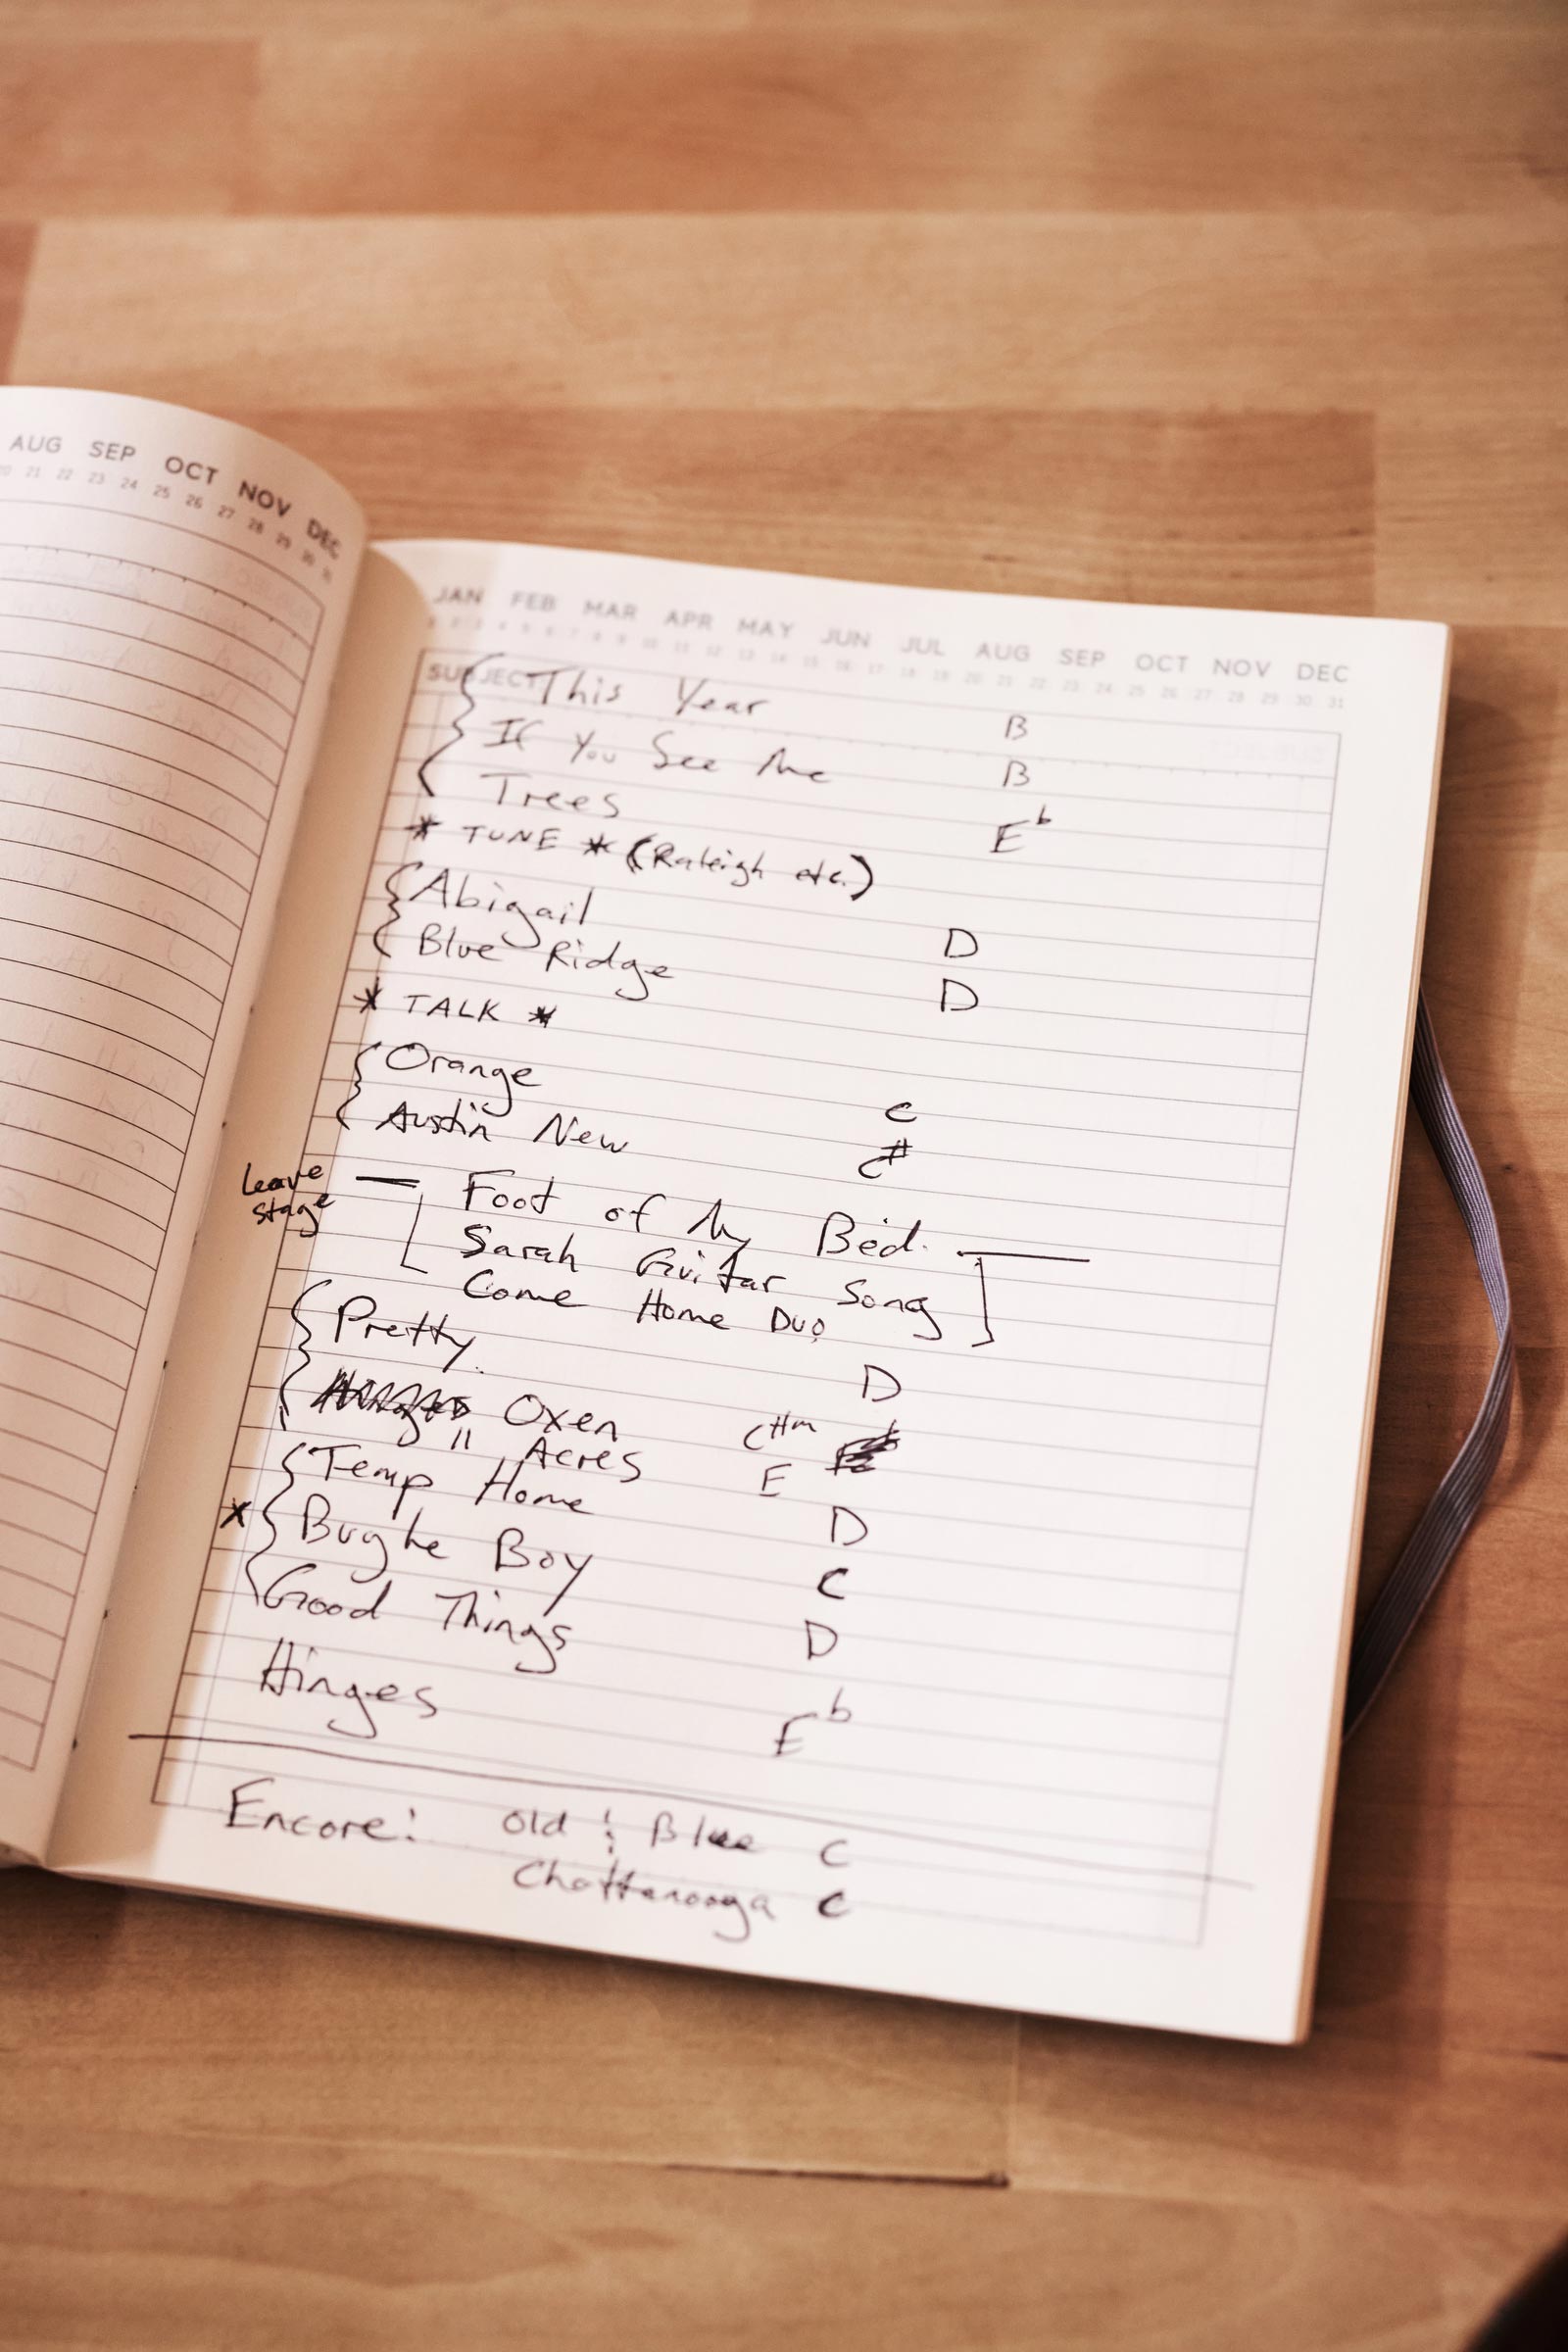 AUG SEP OCT NOV DEC
20 21 22 23 24 25 26 27 28 29 30 31
JAN FEB MAR APR MAY JUN JUL AUG SEP OCT NOV DEC
1 2 3 4 5 6 7 8 9 10 11 12 13 14 15 16 17 18 19 20 21 22 23 24 25 26 27 28 29 30 31
SUBJECT
This Year B
If You See Me B
Trees E♭
* TUNE * (Raleigh etc.)
Abigail D
Blue Ridge D
* TALK *
Orange C
Austin New C#
Leave stage — Foot of My Bed. —
Sarah Guitar Song
Come Home Duo
Pretty D
Oxen C#m
" Acres E
Temp Home D
x Boy C
Good Things D
Hinges E♭
Encore: Old & Blue C
Chattanooga C